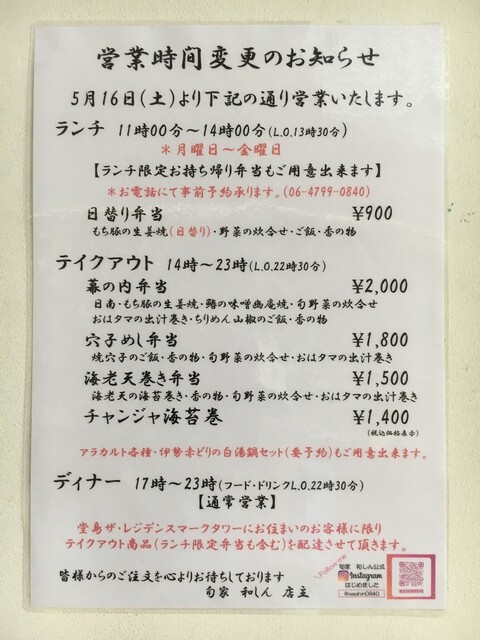 営業時間変更のお知らせ
5月16日(土)より下記の通り営業いたします。
ランチ 11時00分～14時00分(L.O.13時30分)
＊月曜日～金曜日
【ランチ限定お持ち帰り弁当もご用意出来ます】
＊お電話にて事前予約承ります。(06-4799-0840)
日替り弁当 ¥900
もち豚の生姜焼(日替り)・野菜の炊合せ・ご飯・香の物
テイクアウト 14時～23時(L.O.22時30分)
幕の内弁当 ¥2,000
日南・もち豚の生姜焼・鰆の味噌幽庵焼・旬野菜の炊合せ
おはタマの出汁巻き・ちりめん山椒のご飯・香の物
穴子めし弁当 ¥1,800
焼穴子のご飯・香の物・旬野菜の炊合せ・おはタマの出汁巻き
海老天巻き弁当 ¥1,500
海老天の海苔巻き・香の物・旬野菜の炊合せ・おはタマの出汁巻き
チャンジャ海苔巻 ¥1,400
(税込価格表示)
アラカルト各種・伊勢赤どりの白湯鍋セット(要予約)もご用意出来ます。
ディナー 17時～23時(フード・ドリンクL.O.22時30分)
【通常営業】
堂島ザ・レジデンスマークタワーにお住まいのお客様に限り
テイクアウト商品(ランチ限定弁当も含む)を配達させて頂きます。
皆様からのご注文を心よりお待ちしております
旬家 和しん 店主
Follow me
旬家 和しん公式
Instagram
はじめました
@washin0840